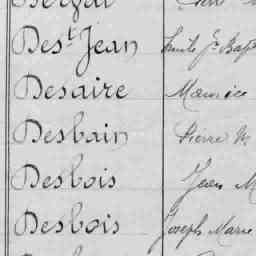 Des.t Jean Emile Jn Bap
Desaire Maurice
Desbain Pierre
Desbois Jean M
Desbois Joseph Marie